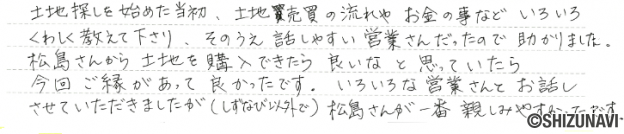 土地探しを始めた当初、土地売買の流れや お金の事など いろいろ
くわしく教えて下さり、そのうえ 話しやすい 営業さんだったので 助かりました。
松島さんから 土地を購入できたら 良いなと思っていたら
今回ご縁があって良かったです。いろいろな営業さんと お話し
させていただきましたが(しずなび以外で)松島さんが一番 親しみやすかったです
©SHIZUNAVI